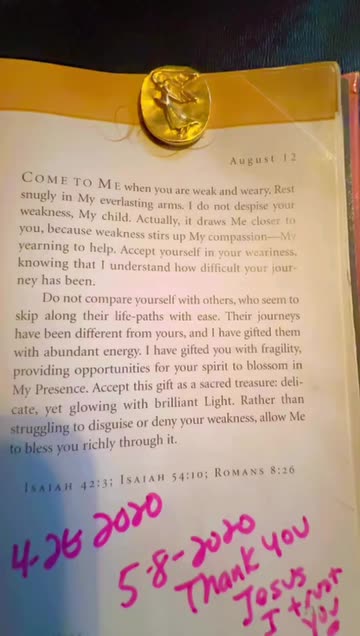 August 12
COME TO ME when you are weak and weary. Rest
snugly in My everlasting arms. I do not despise your
weakness, My child. Actually, it draws Me closer to
you, because weakness stirs up My compassion—My
yearning to help. Accept yourself in your weariness,
knowing that I understand how difficult your jour-
ney has been.
Do not compare yourself with others, who seem to
skip along their life-paths with ease. Their journeys
have been different from yours, and I have gifted them
with abundant energy. I have gifted you with fragility,
providing opportunities for your spirit to blossom in
My Presence. Accept this gift as a sacred treasure: deli-
cate, yet glowing with brilliant Light. Rather than
struggling to disguise or deny your weakness, allow Me
to bless you richly through it.
ISAIAH 42:3; ISAIAH 54:10; ROMANS 8:26
4-26 2020
5-8-2020
Thank you
Josus
I trust
you